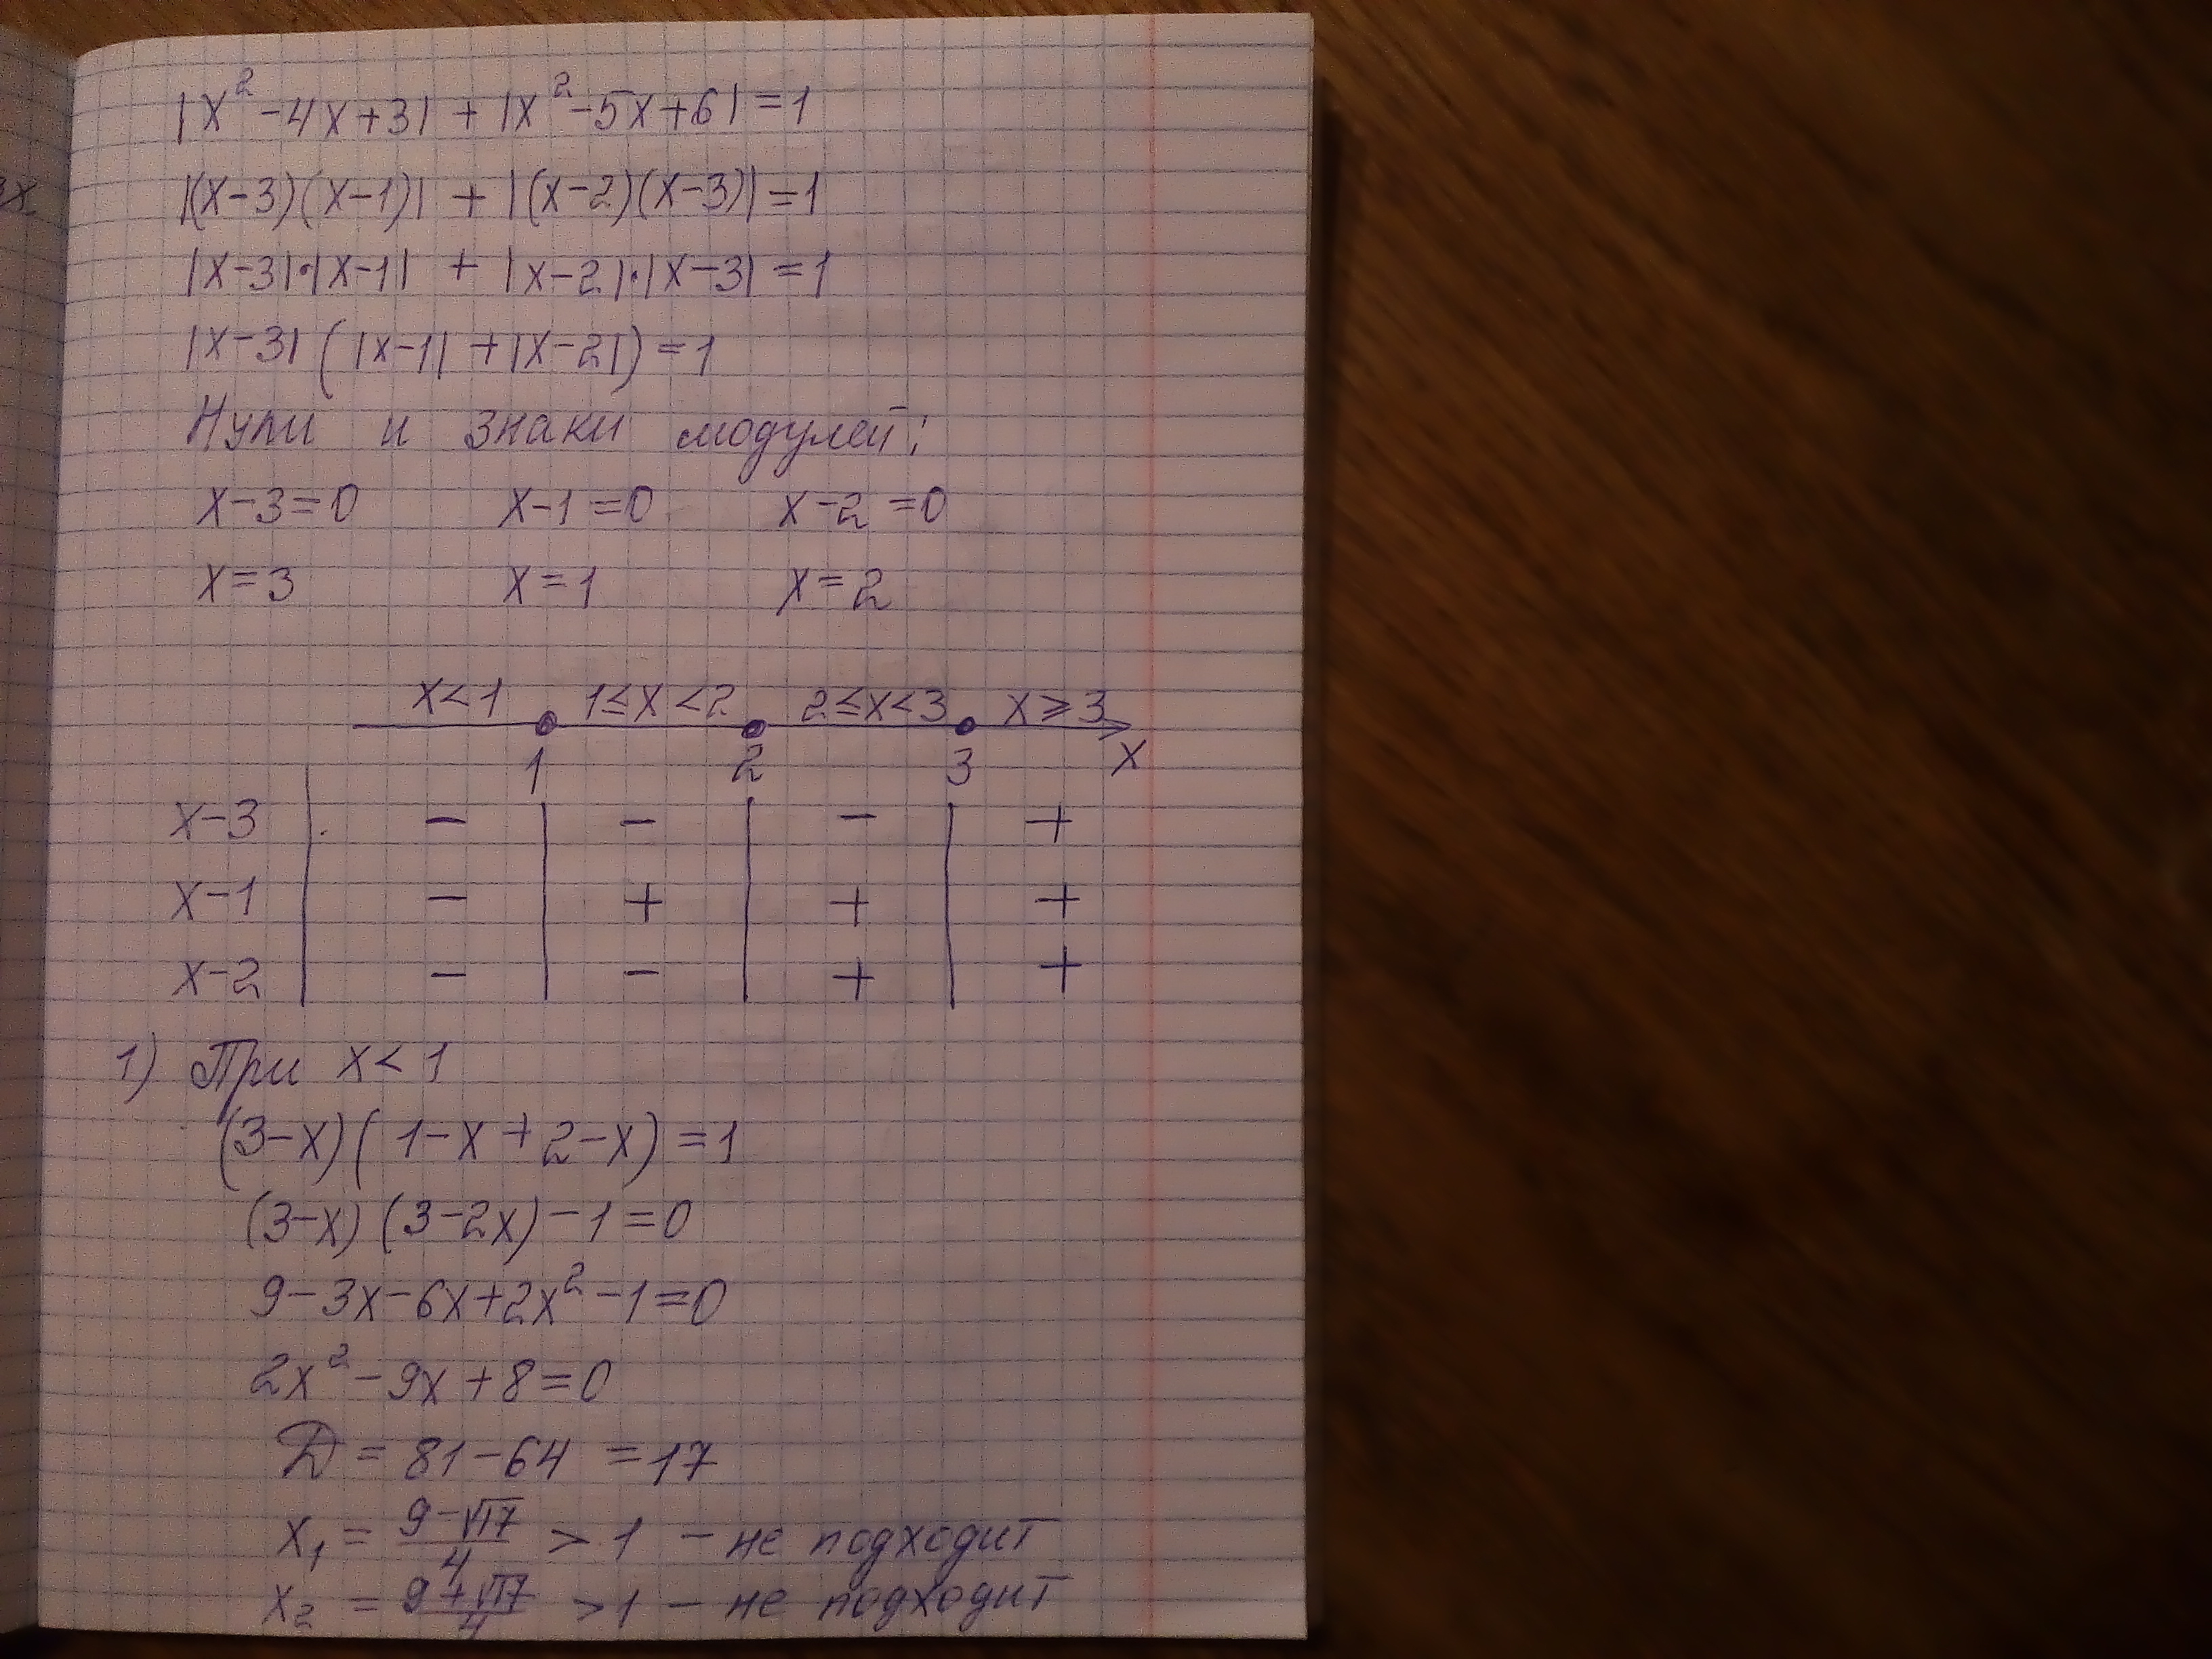 |x²-4x+3| + |x²-5x+6| = 1
|(x-3)(x-1)| + |(x-2)(x-3)| = 1
|x-3|·|x-1| + |x-2|·|x-3| = 1
|x-3|(|x-1| + |x-2|) = 1
Нули и знаки модулей:
x-3=0 x-1=0 x-2=0
x=3 x=1 x=2
x<1 1≤x<2 2≤x<3 x≥3
1 2 3 x
x-3 - - - +
x-1 - + + +
x-2 - - + +
1) При x<1
(3-x)(1-x+2-x)=1
(3-x)(3-2x)-1=0
9-3x-6x+2x²-1=0
2x²-9x+8=0
Д = 81-64 = 17
x₁ = (9-√17)/4 > 1 - не подходит
x₂ = (9+√17)/4 > 1 - не подходит